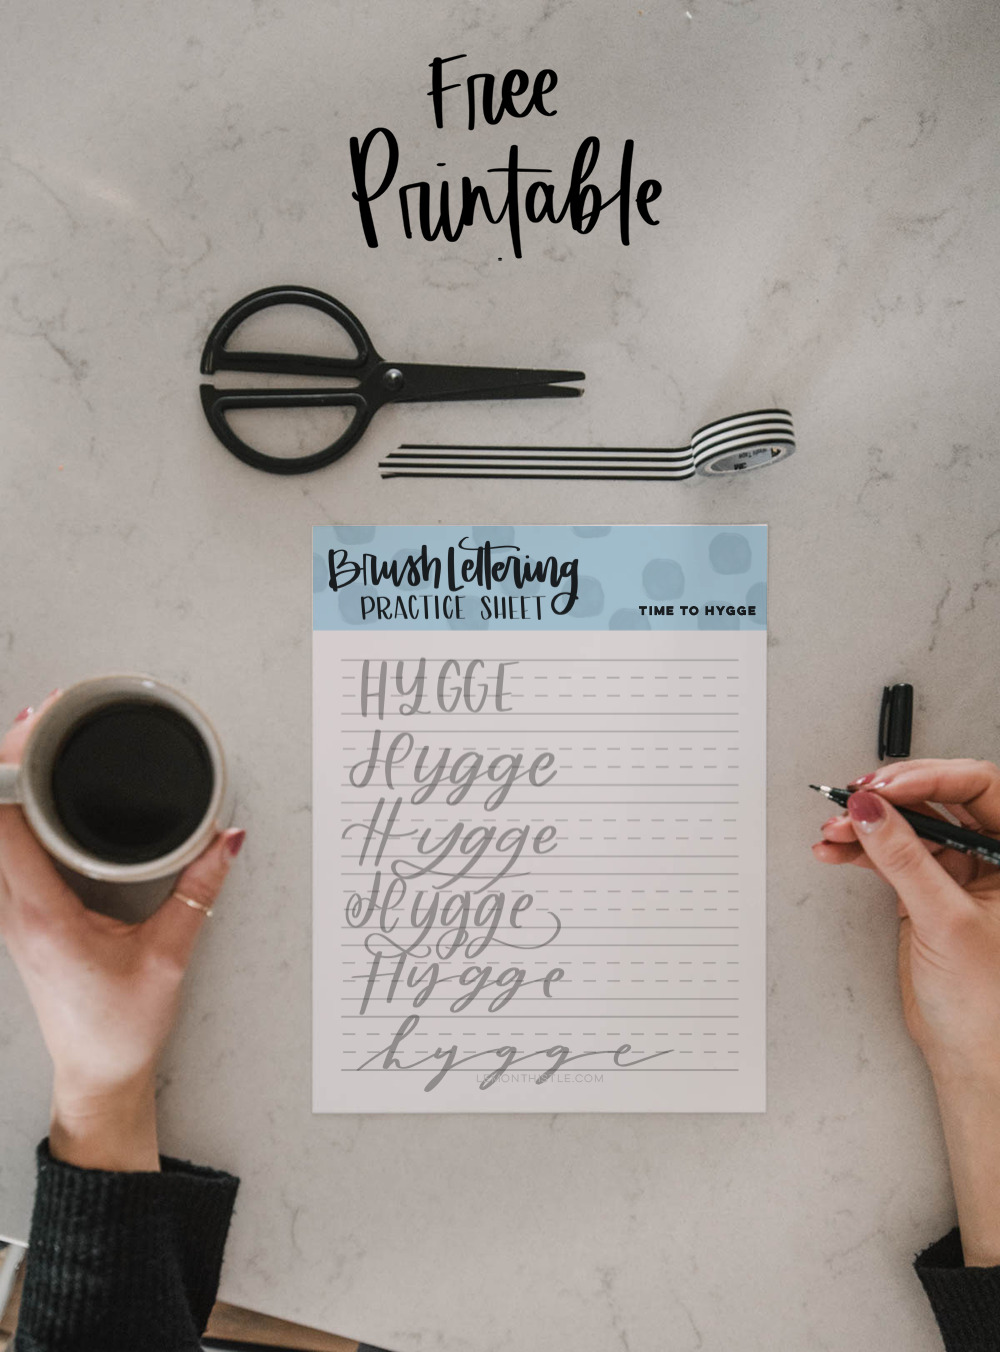 Free
Printable
Brush Lettering
PRACTICE SHEET
TIME TO HYGGE
HYGGE
Hygge
Hygge
Hygge
Hygge
hygge
LEMONTHISTLE.COM